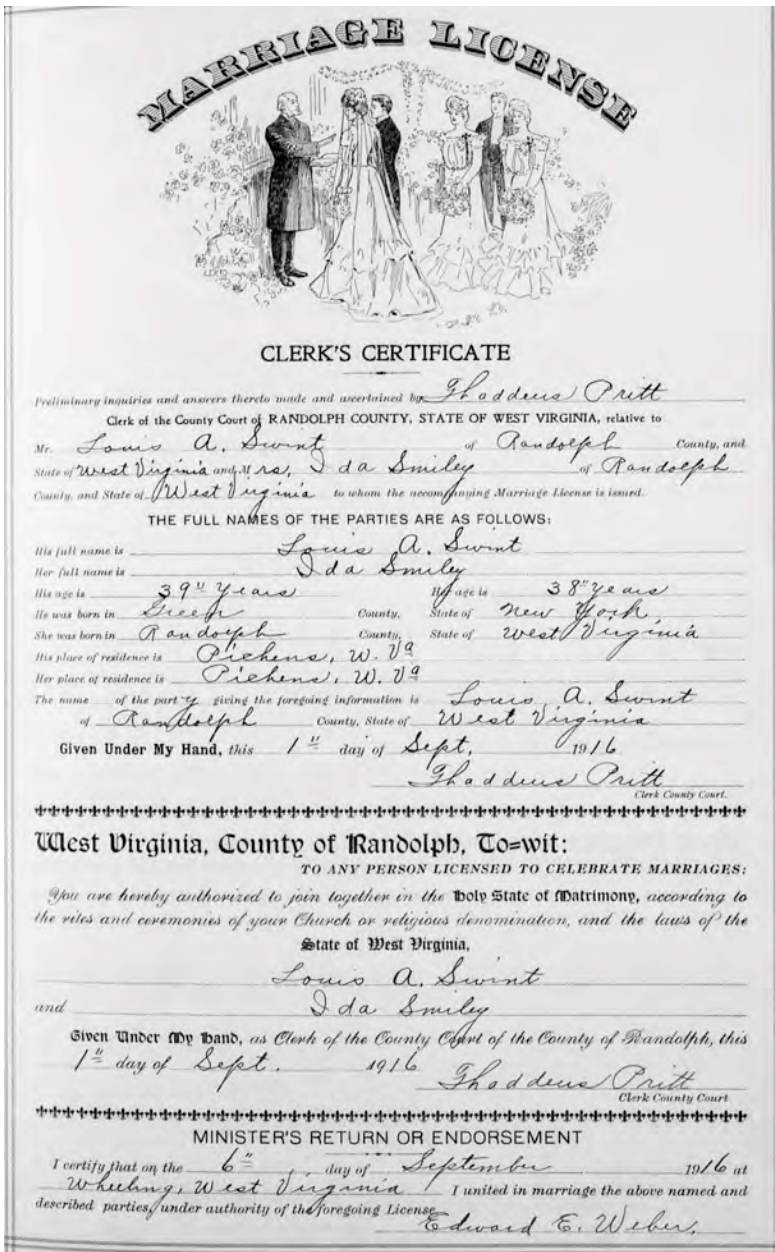 MARRIAGE LICENSE
CLERK'S CERTIFICATE
Preliminary inquiries and answers thereto made and ascertained by Thaddeus Pritt
Clerk of the County Court of RANDOLPH COUNTY, STATE OF WEST VIRGINIA, relative to
Mr. Louis A. Swint of Randolph County, and
State of West Virginia and Mrs, Ida Smiley of Randolph
County, and State of West Virginia to whom the accompanying Marriage License is issued.
THE FULL NAMES OF THE PARTIES ARE AS FOLLOWS:
His full name is Louis A. Swint
Her full name is Ida Smiley
His age is 39" Years Her age is 38" Years
He was born in Green County, State of New York,
She was born in Randolph County, State of West Virginia
His place of residence is Pickens, W. Va
Her place of residence is Pickens, W. Va
The name of the party giving the foregoing information is Louis, A. Swint
of Randolph County, State of West Virginia
Given Under My Hand, this 1" day of Sept, 1916
Thaddeus Pritt
Clerk County Court.
West Virginia, County of Randolph, To=wit:
TO ANY PERSON LICENSED TO CELEBRATE MARRIAGES:
You are hereby authorized to join together in the Holy State of Matrimony, according to
the rites and ceremonies of your Church or religious denomination, and the laws of the
State of West Virginia,
Louis A. Swint
and Ida Smiley
Given Under My Hand, as Clerk of the County Court of the County of Randolph, this
1" day of Sept. 1916
Thaddeus Pritt
Clerk County Court
MINISTER'S RETURN OR ENDORSEMENT
I certify that on the 6" day of September 1916 at
Wheeling, West Virginia I united in marriage the above named and
described parties, under authority of the foregoing License
Edward E. Weber,